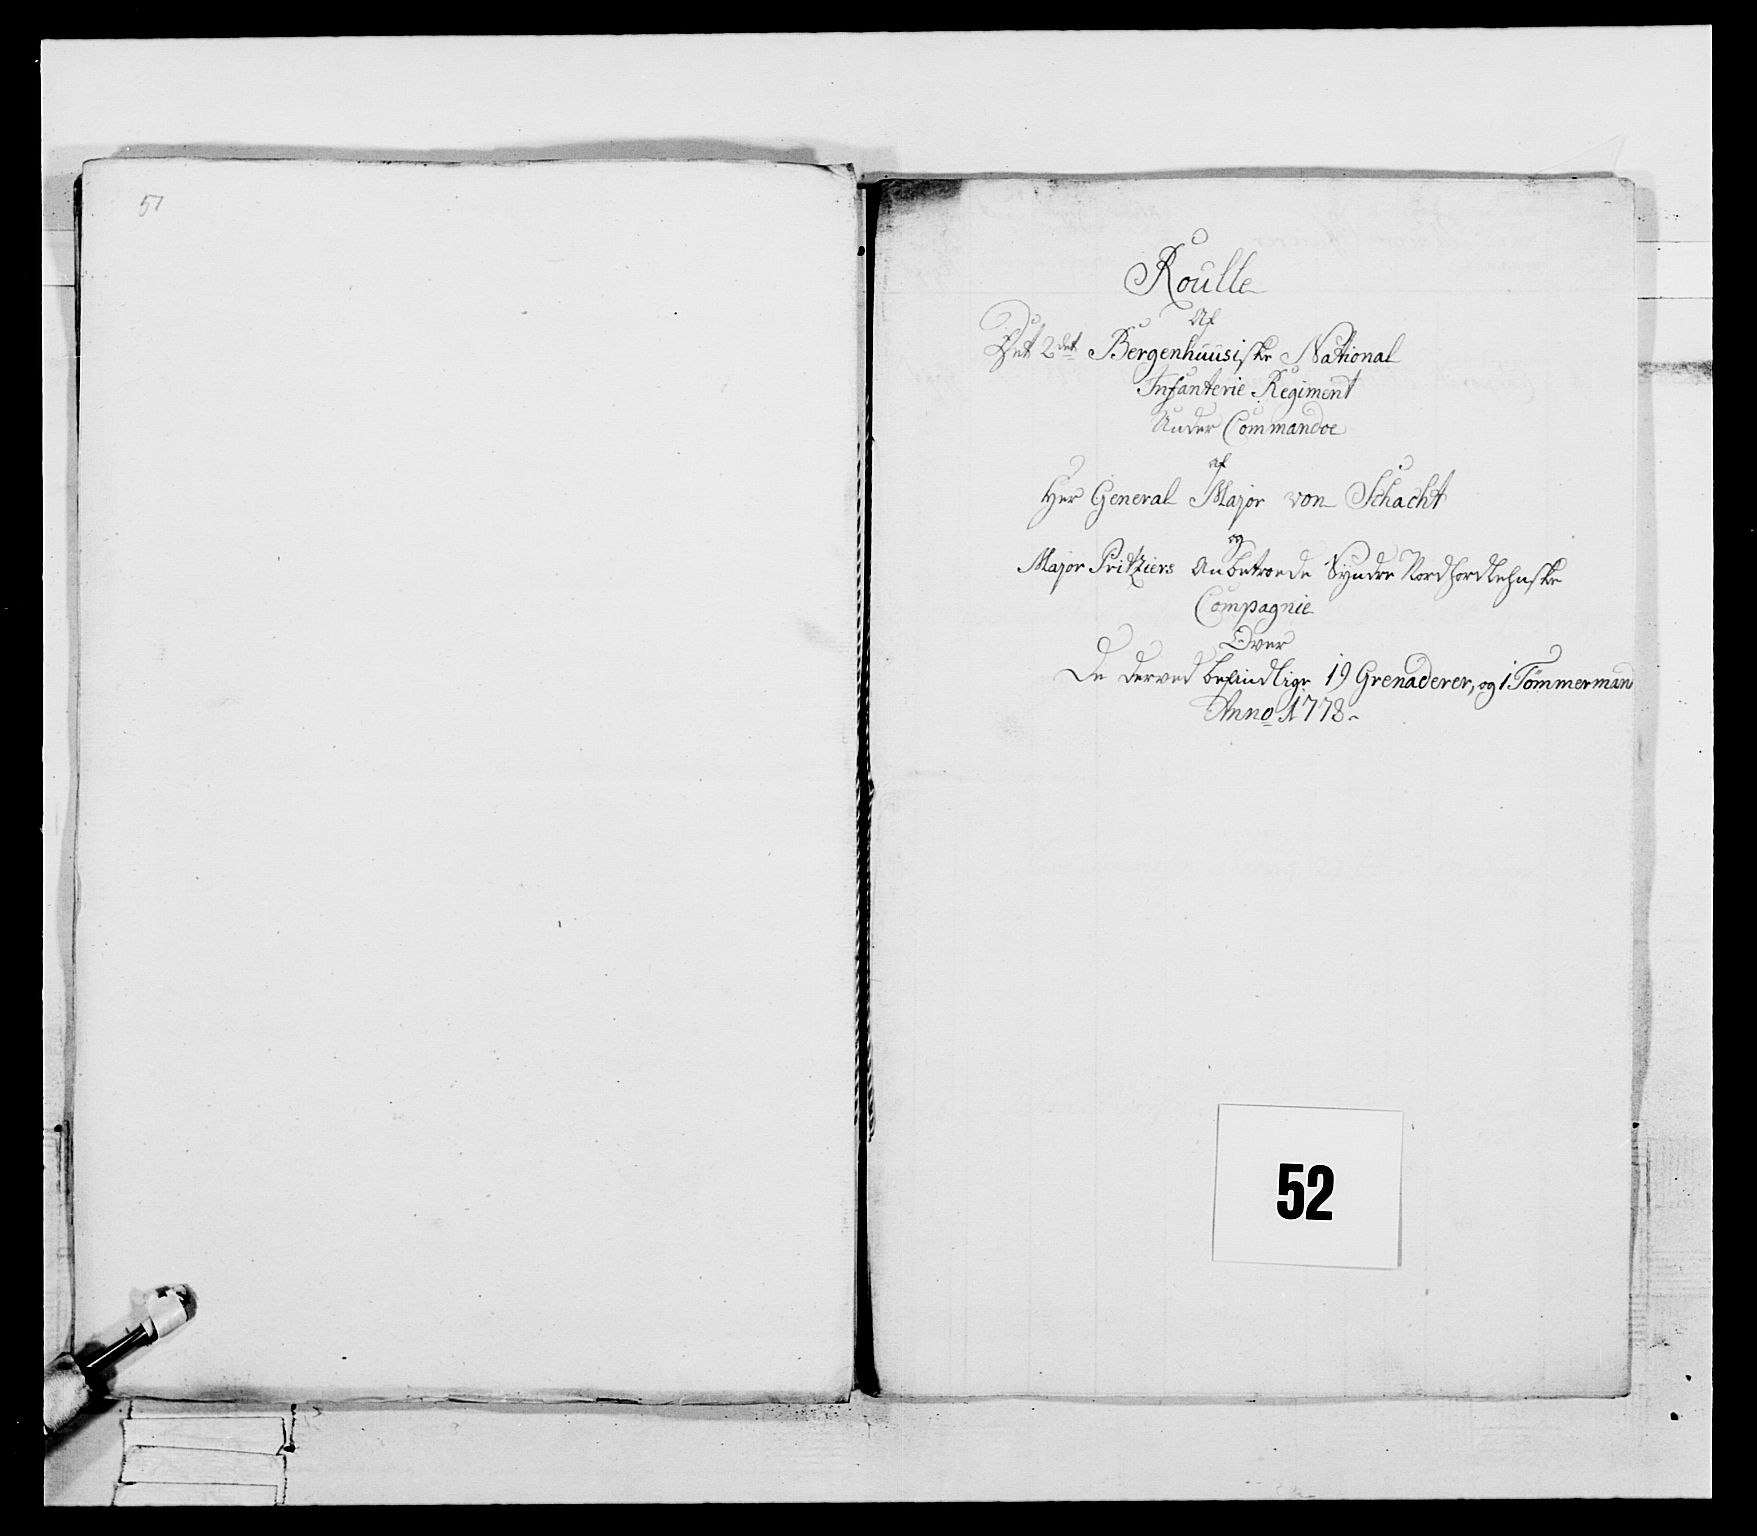 51
Roulle
Af
Det 2det Bergenhuusiske National
Infanterie Regiment
Under Commandoe
af
Herr General Major von Schacht
og
Major Pritziers Anbetroede Syndre Nordhordlehnske
Compagnie
Over
De derved befindlige 19 Grenaderer, og 1 Tömmermand
Anno 1778.
52